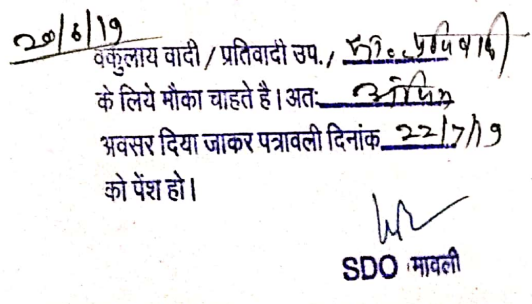 20/6/19
वकुलाय वादी / प्रतिवादी उप./
के लिये मौका चाहते है। अतः
अवसर दिया जाकर पत्रावली दिनांक 22/7/19
को पेंश हो।
SDO मावली